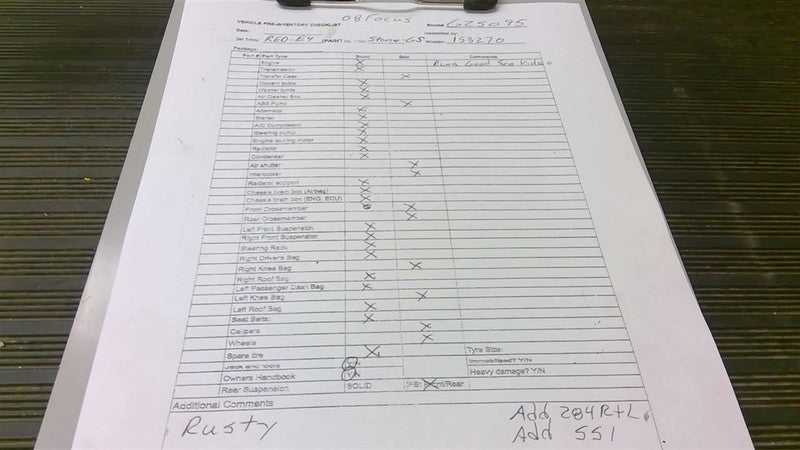 08 Focus
VEHICLE PRE-INVENTORY CHECKLIST G25095
Date: Inspected by:
Int Trim: RED-E4 PAINT Stone-G5 153270
Package:
Part # Part Type Good Bad Comments
Engine X Runs Good See Video
Transmission X
Transfer Case X
Coolant bottle X
Washer bottle X
Air Cleaner Box X
ABS Pump X
Alternator X
Starter X
A/C Compressor X
Steering pump X
Engine cooling motor X
Radiator X
Condenser X
Air shutter X
Intercooler X
Radiator support X
Chassis brain box (Airbag) X
Chassis brain box (ENG, ECU) X
Front Crossmember X
Rear Crossmember X
Left Front Suspension X
Right Front Suspension X
Steering Rack X
Right Driver's Bag X
Right Knee Bag X
Right Roof Bag X
Left Passenger Dash Bag X
Left Knee Bag X
Left Roof Bag X
Seat Belts: X
Calipers X
Wheels X
Spare tire X Tyre Size:
Jack and tools Y/N Immobilised? Y/N
Owners Handbook Y/N Heavy damage? Y/N
Rear Suspension SOLID IFS: Front/Rear
Additional Comments
Rusty Add 284R+L
Add 551